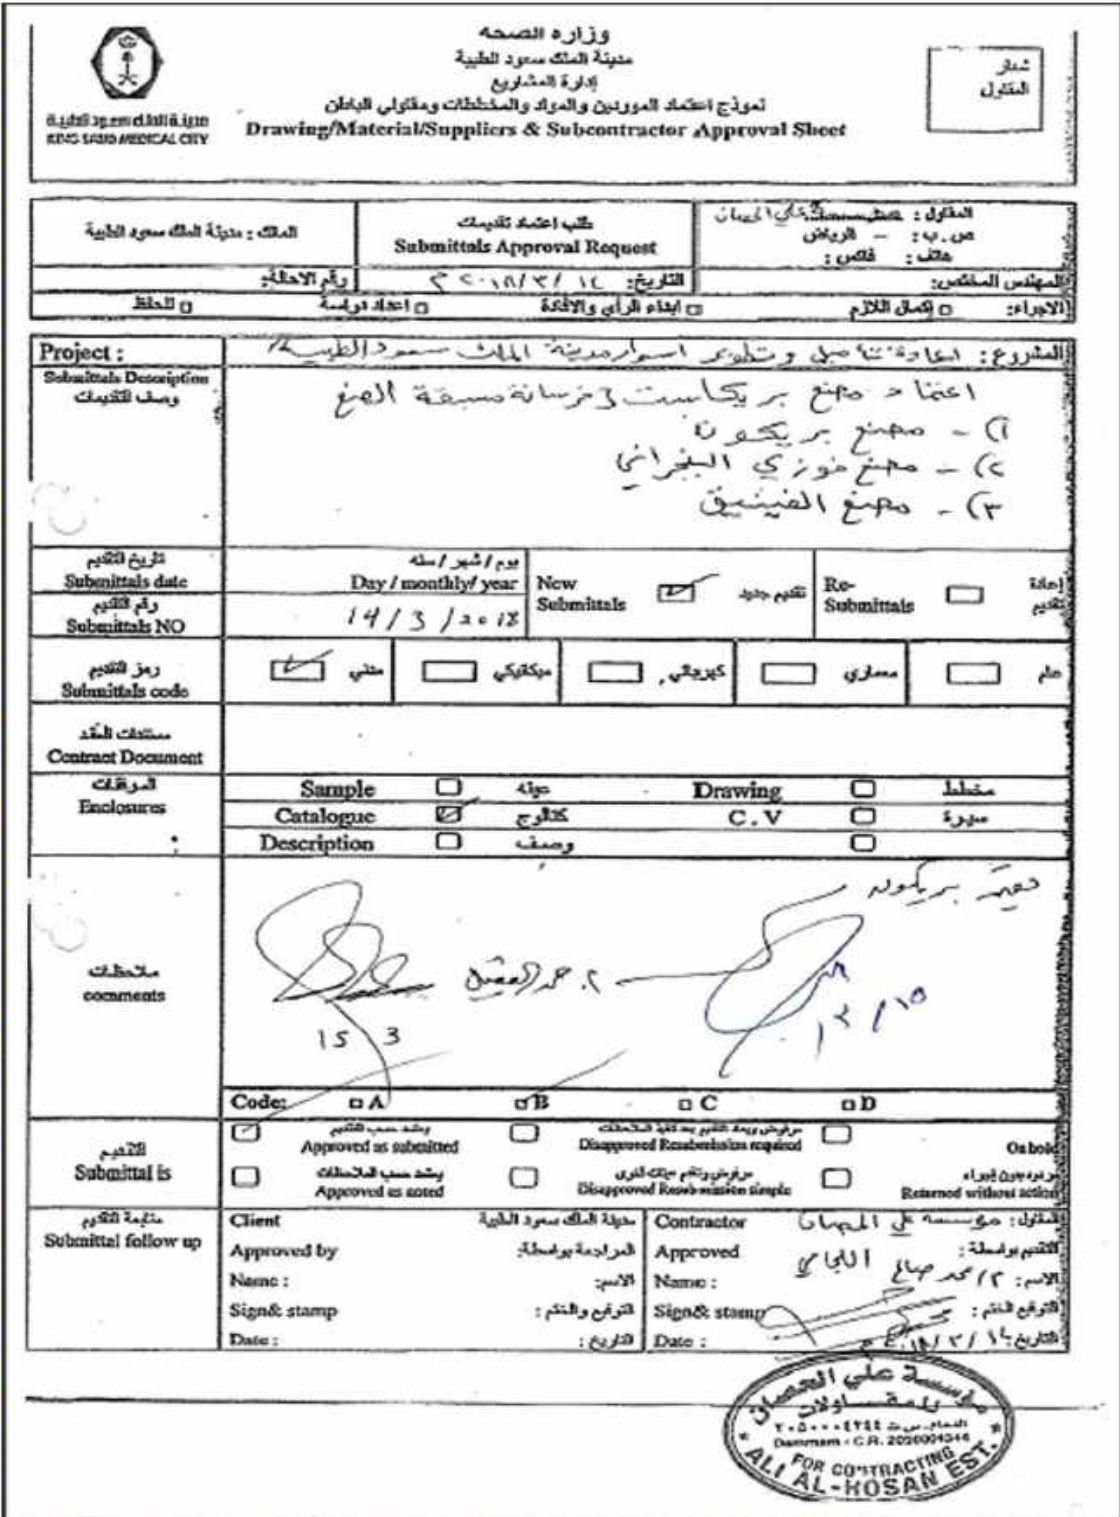 وزارة الصحة
مدينة الملك سعود الطبية
إدارة المشاريع
نموذج اعتماد الموردين والمواد والمخططات ومقاولي الباطن
Drawing/Material/Suppliers & Subcontractor Approval Sheet
مدينة الملك سعود الطبية
KING SAUD MEDICAL CITY
شعار
المقاول
المقاول : علي الحصان
ص.ب: - الرياض
هاتف : فاكس :
طلب اعتماد تقديمات
Submittals Approval Request
المالك : مدينة الملك سعود الطبية
المهندس المختص:
التاريخ: ١٤ / ٣ / ٢٠١٨ م
رقم الاحالة:
الاجراء: إكمال اللازم ابداء الرأي والافادة اعداد دراسة للحفظ
Project :
المشروع : اعادة تأهيل وتطوير اسوار مدينة الملك سعود الطبية
Submittals Description
وصف التقديمات
اعتماد مصنع بريكاست خرسانة مسبقة الصنع
١) - مصنع بريكون
٢) - مصنع فوزي النجراني
٣) - مصنع الفينيق
تاريخ التقديم
Submittals date
رقم التقديم
Submittals NO
يوم / شهر / سنه
Day / monthly/ year
14/3/2018
New
Submittals
تقديم جديد
Re-
Submittals
إعادة
تقديم
رمز التقديم
Submittals code
مدني
ميكانيكي
كهربائي
معماري
عام
مستندات العقد
Contract Document
المرفقات
Enclosures
Sample عينه Drawing مخطط
Catalogue كتالوج C.V سيرة
Description وصف
ملاحظات
comments
بريكون
15 3
٣/١٥
Code: A B C D
التقديم
Submittal is
يعتمد حسب التقديم
Approved as submitted
مرفوض ويعاد التقديم بعد تنفيذ الملاحظات
Disapproved Resubmission required
On hold
يعتمد حسب الملاحظات
Approved as noted
مرفوض وتقدم عينات اخرى
Disapproved Resubmission simple
مردود بدون إجراء
Returned without action
متابعة التقديم
Submittal follow up
Client مدينة الملك سعود الطبية
Approved by المراجعة بواسطة:
Name : الاسم:
Sign& stamp التوقيع والختم :
Date : التاريخ :
Contractor المقاول: مؤسسة علي الحصان
Approved التقديم بواسطة :
Name : الاسم: م/ محمد صالح
Sign& stamp التوقيع الختم :
Date : التاريخ: ١٤ / ٣ / ٢٠١٨ م
مؤسسة علي الحصان
للمقاولات
الدمام - س.ت ٢٠٥٠٠٠٤٣٤٤
Dammam - C.R. 2050004344
FOR CONTRACTING
ALI AL-HOSAN EST.